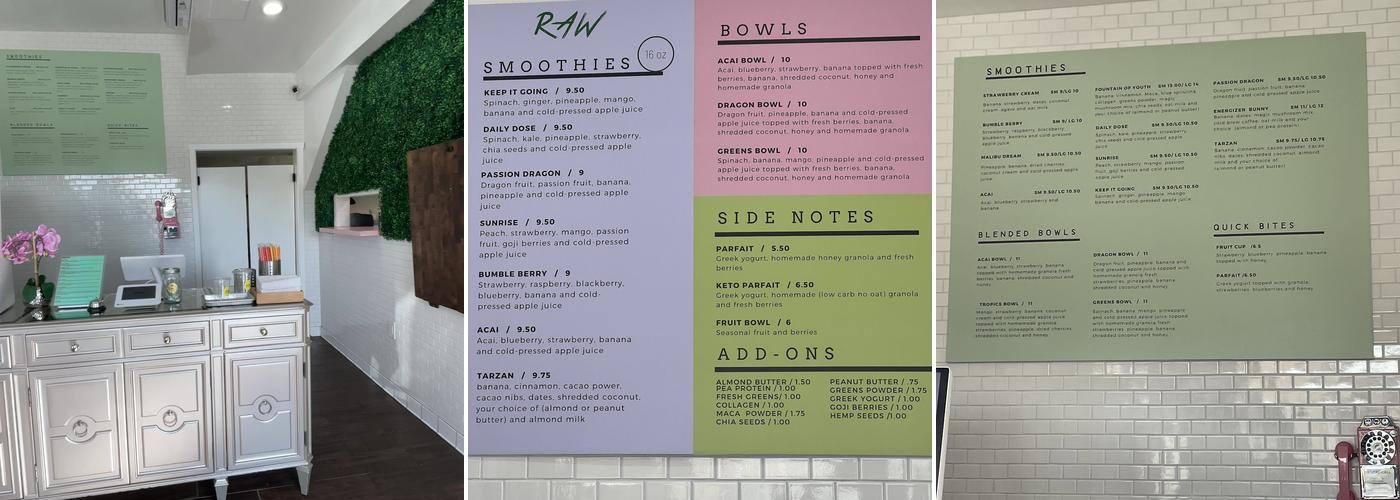 SMOOTHIES
BLENDED BOWLS
QUICK BITES
RAW
SMOOTHIES
16 oz
KEEP IT GOING / 9.50
Spinach, ginger, pineapple, mango,
banana and cold-pressed apple juice
DAILY DOSE / 9.50
Spinach, kale, pineapple, strawberry,
chia seeds and cold-pressed apple
juice
PASSION DRAGON / 9
Dragon fruit, passion fruit, banana,
pineapple and cold-pressed apple
juice
SUNRISE / 9.50
Peach, strawberry, mango, passion
fruit, goji berries and cold-pressed
apple juice
BUMBLE BERRY / 9
Strawberry, raspberry, blackberry,
blueberry, banana and cold-
pressed apple juice
ACAI / 9.50
Acai, blueberry, strawberry, banana
and cold-pressed apple juice
TARZAN / 9.75
banana, cinnamon, cacao power,
cacao nibs, dates, shredded coconut,
your choice of (almond or peanut
butter) and almond milk
BOWLS
ACAI BOWL / 10
Acai, blueberry, strawberry, banana topped with fresh
berries, banana, shredded coconut, honey and
homemade granola
DRAGON BOWL / 10
Dragon fruit, pineapple, banana and cold-pressed
apple juice topped with fresh berries, banana,
shredded coconut, honey and homemade granola
GREENS BOWL / 10
Spinach, banana, mango, pineapple and cold-pressed
apple juice topped with fresh berries, banana,
shredded coconut, honey and homemade granola
SIDE NOTES
PARFAIT / 5.50
Greek yogurt, homemade honey granola and fresh
berries
KETO PARFAIT / 6.50
Greek yogurt, homemade (low carb no oat) granola
and fresh berries
FRUIT BOWL / 6
Seasonal fruit and berries
ADD-ONS
ALMOND BUTTER / 1.50
PEA PROTEIN / 1.00
FRESH GREENS/ 1.00
COLLAGEN / 1.00
MACA POWDER / 1.75
CHIA SEEDS / 1.00
PEANUT BUTTER / .75
GREENS POWDER / 1.75
GREEK YOGURT / 1.00
GOJI BERRIES / 1.00
HEMP SEEDS /1.00
SMOOTHIES
STRAWBERRY CREAM SM 9/LG 10
Banana, strawberry, dates, coconut
cream, agave and oat milk
BUMBLE BERRY SM 9/ LG 10
Strawberry, raspberry, blackberry,
blueberry, banana and cold-pressed
apple juice
MALIBU DREAM SM 9.50/LG 10.50
Pineapple, banana, dried cherries,
coconut cream and cold-pressed apple
juice
ACAI SM 9.50/ LG 10.50
Acai, blueberry, strawberry and
banana
FOUNTAIN OF YOUTH SM 13.00/LG 14
Banana, cinnamon, Maca, blue spirulina,
collagen, greens powder, magic
mushroom mix, chia seeds, oat milk and
your choice of (almond or peanut butter)
DAILY DOSE SM 9.50/ LG 10.50
Spinach, kale, pineapple, strawberry,
chia seeds and cold-pressed apple
juice
SUNRISE SM 9.50/LG 10.50
Peach, strawberry, mango, passion
fruit, goji berries and cold-pressed
apple juice
KEEP IT GOING SM 9.50/ LG 10.50
Spinach, ginger, pineapple, mango,
banana
PASSION DRAGON SM 9.50/LG 10.50
Dragon fruit, passion fruit, banana,
pineapple and cold-pressed apple juice
ENERGIZER BUNNY SM 11/ LG 12
Banana, dates, magic mushroom mix,
cold brew coffee, oat milk and your
choice (almond or pea protein)
TARZAN SM 9.75/ LG 10.75
Banana, cinnamon, cacao powder, cacao
nibs, dates, shredded coconut, almond
milk and your choice of
(almond or peanut butter)
BLENDED BOWLS
ACAI BOWL / 11
Acai, blueberry, strawberry, banana
topped with homemade granola fresh
berries, banana, shredded coconut and
honey
TROPICS BOWL / 11
Mango, strawberry, banana, coconut
cream and cold-pressed apple juice
topped with homemade granola, fresh
strawberries, pineapple, dried cherries
shredded coconut and honey
DRAGON BOWL / 11
Dragon fruit, pineapple, banana and
cold-pressed apple juice topped with
homemade granola fresh
strawberries, pineapple, banana
shredded coconut and honey
GREENS BOWL / 11
Spinach, banana, mango, pineapple
and cold-pressed apple juice topped
with homemade granola fresh
strawberries, pineapple, banana,
shredded coconut and honey
QUICK BITES
FRUIT CUP /6.5
Strawberry, blueberry, pineapple, banana
topped with honey
PARFAIT /6.50
Greek yogurt topped with granola,
strawberries, blueberries and honey